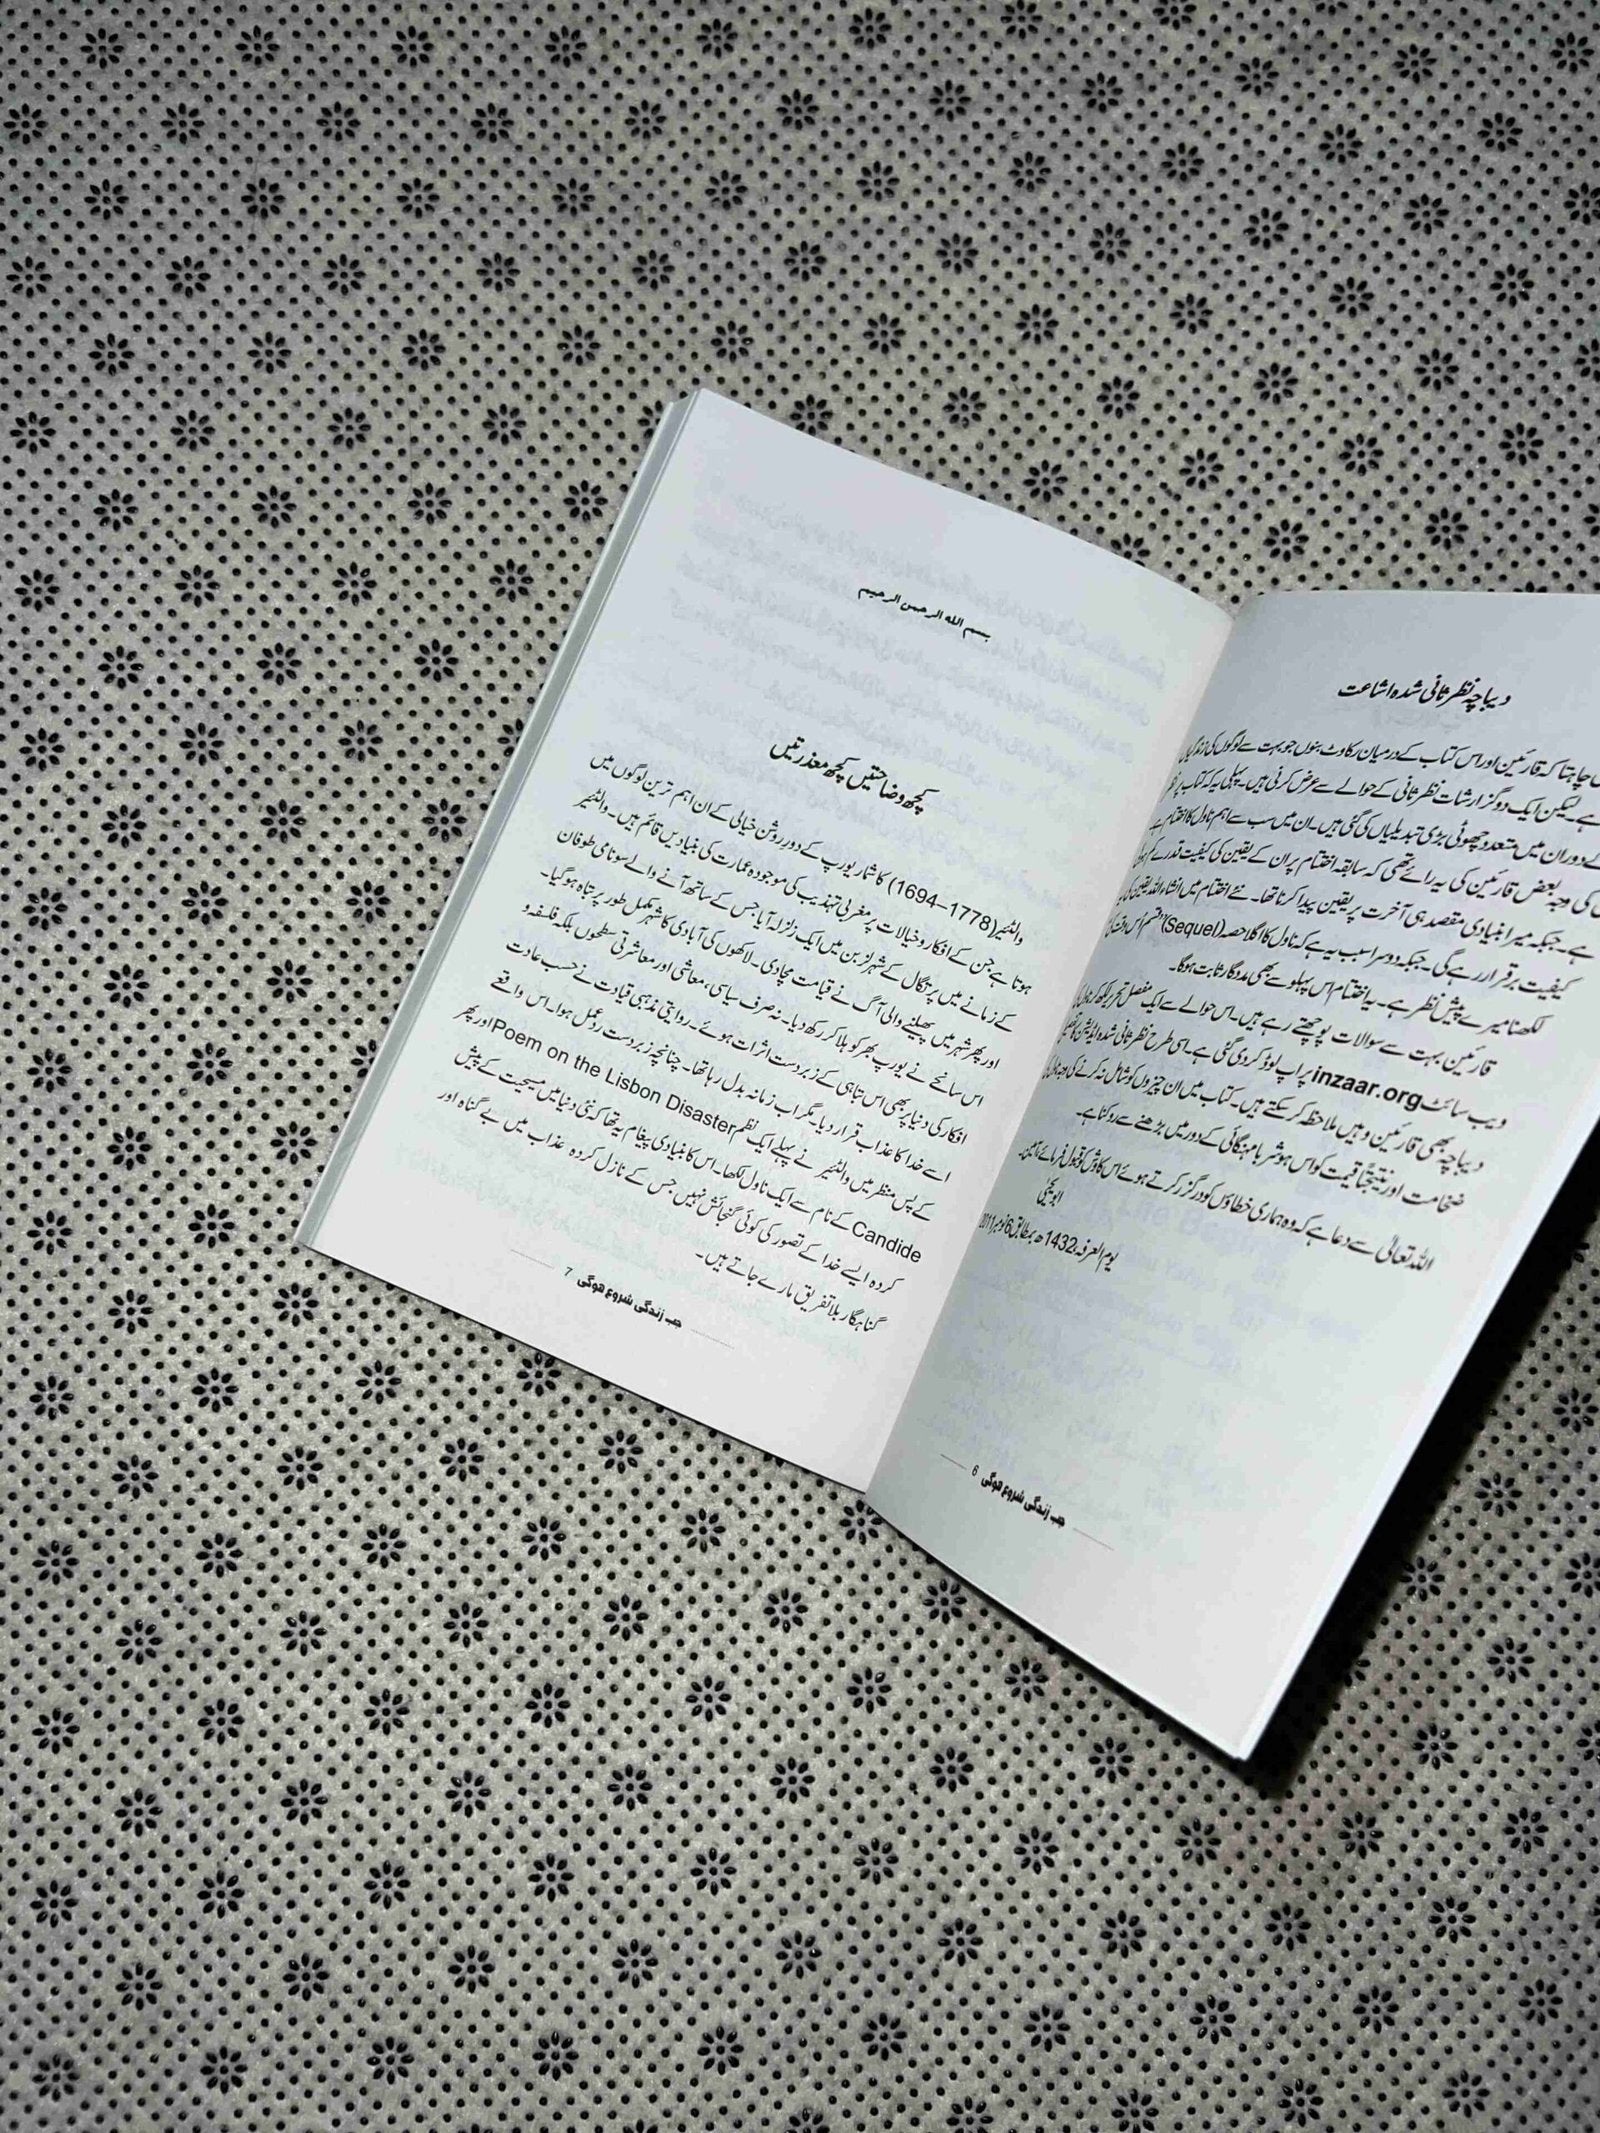 دیباچہ نظر ثانی شدہ اشاعت
چاہتا کہ قارئین اور اس کتاب کے درمیان رکاوٹ بنوں جو بہت سے لوگوں کی زندگیاں
ہے۔ لیکن ایک دو گزارشات نظر ثانی کے حوالے سے عرض کرنی ہیں۔ پہلی یہ کہ کتاب پر نظر
کے دوران میں متعدد چھوٹی بڑی تبدیلیاں کی گئی ہیں۔ ان میں سب سے اہم ناول کا اختتام ہے
کی وجہ بعض قارئین کی یہ رائے تھی کہ سابقہ اختتام پر ان کے یقین کی کیفیت قدرے کم ہو
ہے۔ جبکہ میرا بنیادی مقصد ہی آخرت پر یقین پیدا کرنا تھا۔ نئے اختتام میں انشاء اللہ یقین کی
کیفیت برقرار رہے گی۔ جبکہ دوسرا سبب یہ ہے کہ ناول کا اگلا حصہ (Sequel) ”قسم اُس وقت کی
لکھنا میرے پیش نظر ہے۔ یہ اختتام اس پہلو سے بھی مددگار ثابت ہوگا۔
قارئین بہت سے سوالات پوچھتے رہے ہیں۔ اس حوالے سے ایک مفصل تحریر لکھ کر ناول کی
ویب سائٹ inzaar.org پر اپ لوڈ کر دی گئی ہے۔ اسی طرح نظر ثانی شدہ ایڈیشن پر تفصیلی
دیباچہ بھی قارئین وہیں ملاحظہ کر سکتے ہیں۔ کتاب میں ان چیزوں کو شامل نہ کرنے کی وجہ ناول کی
ضخامت اور نتیجتاً قیمت کو اس ہوشربا مہنگائی کے دور میں بڑھنے سے روکنا ہے۔
اللہ تعالیٰ سے دعا ہے کہ وہ ہماری خطاؤں کو درگزر کرتے ہوئے اس کاوش کو قبول فرمائے، آمین۔
ابو یحییٰ
یوم العرفہ، 1432ھ بمطابق 6 نومبر 2011
جب زندگی شروع ہوگی 6
بسم الله الرحمن الرحيم
کچھ وضاحتیں کچھ معذرتیں
والٹئیر (1694–1778) کا شمار یورپ کے دور روشن خیالی کے ان اہم ترین لوگوں میں
ہوتا ہے جن کے افکار و خیالات پر مغربی تہذیب کی موجودہ عمارت کی بنیادیں قائم ہیں۔ والٹئیر
کے زمانے میں پرتگال کے شہر لزبن میں ایک زلزلہ آیا جس کے ساتھ آنے والے سونامی طوفان
اور پھر شہر میں پھیلنے والی آگ نے قیامت مچادی۔ لاکھوں کی آبادی کا شہر مکمل طور پر تباہ ہوگیا۔
اس سانحے نے یورپ بھر کو ہلا کر رکھ دیا۔ نہ صرف سیاسی، معاشی اور معاشرتی سطحوں بلکہ فلسفہ و
افکار کی دنیا پر بھی اس تباہی کے زبردست اثرات ہوئے۔ روایتی مذہبی قیادت نے حسب عادت
اسے خدا کا عذاب قرار دیا۔ مگر اب زمانہ بدل رہا تھا۔ چنانچہ زبردست ردعمل ہوا۔ اس واقعے
کے پس منظر میں والٹئیر نے پہلے ایک نظم Poem on the Lisbon Disaster اور پھر
Candide کے نام سے ایک ناول لکھا۔ اس کا بنیادی پیغام یہ تھا کہ نئی دنیا میں مسیحیت کے پیش
کردہ ایسے خدا کے تصور کی کوئی گنجائش نہیں جس کے نازل کردہ عذاب میں بے گناہ اور
گناہگار بلا تفریق مارے جاتے ہیں۔
جب زندگی شروع ہوگی 7